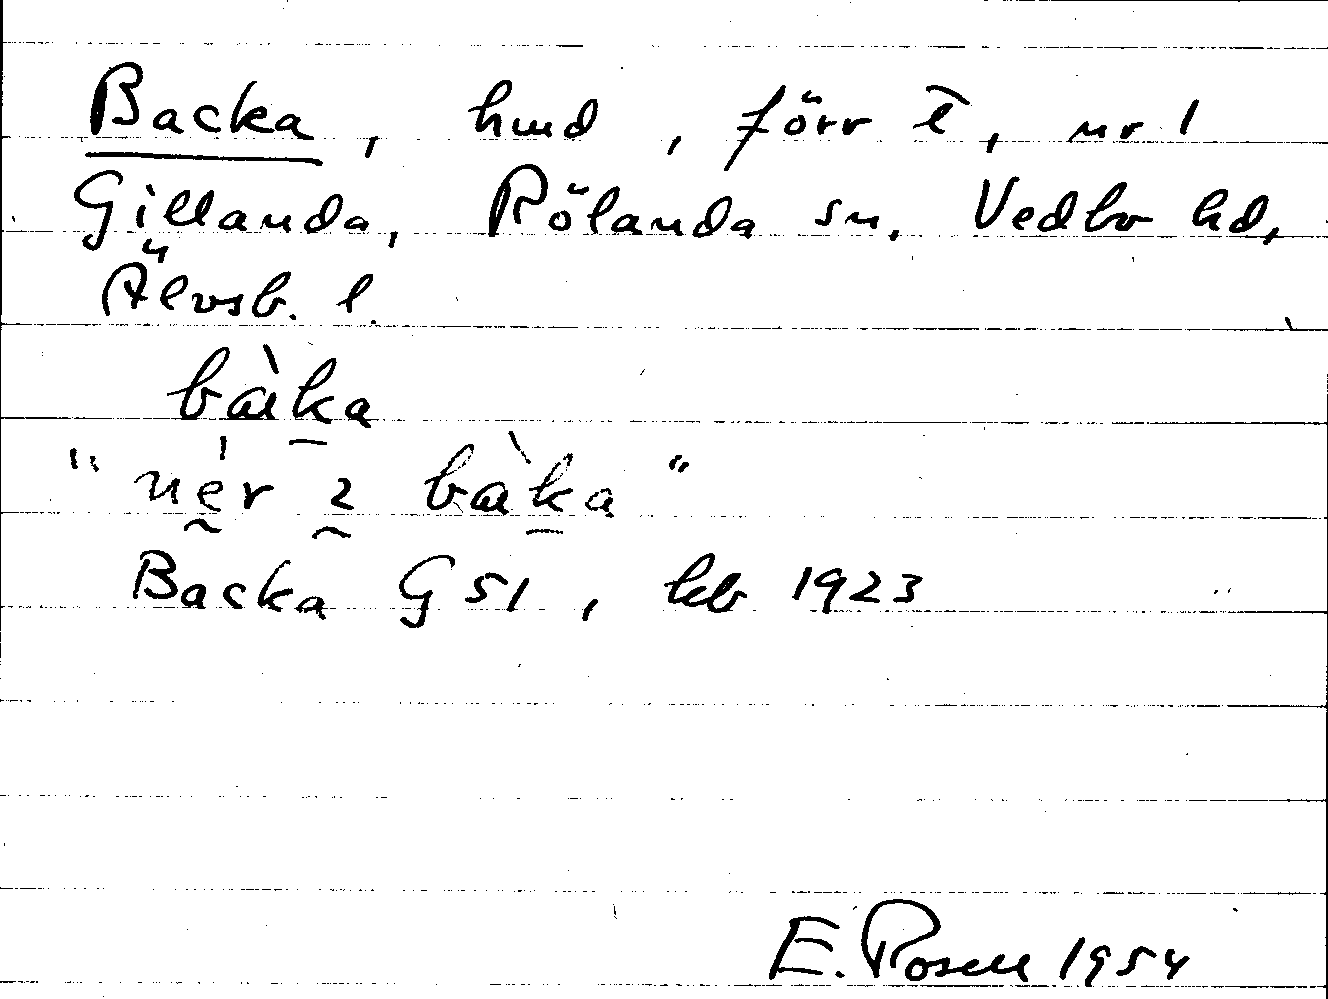 Backa, hmd, förr t̄, nr 1
Gillanda, Rölanda sn, Vedbo hd,
Älvsb. l.
bàka
"nér ɩ bàka"
Backa G 51, kb 1923
E. Rosell 1954